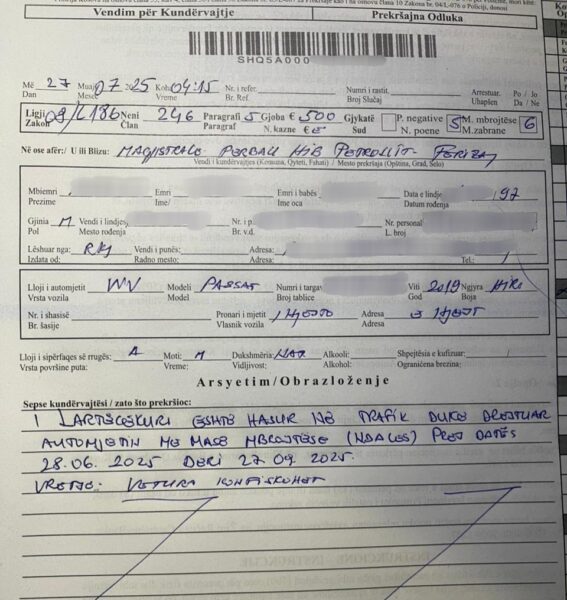 Vendim për Kundërvajtje Prekršajna Odluka
SHQ5A000
Më 27 Muaj 07 2025 Koha 04:15 Nr. i refer. Numri i rastit. Arrestuar. Po / Jo
Dan Mesec Vreme Br. Ref. Broj Slučaj Uhapšen Da / Ne
Ligji 08/L186 Neni 246 Paragrafi 5 Gjoba € 500 Gjykatë P. negative 5 M. mbrojtëse 6
Zakon Član Paragraf N. kazne € Sud N. poene M. zabrane
Në ose afër:/ U ili Blizu: MAGJISTRALE PERBALL HIB PETROLLIT FERIZAJ
Vendi i kundërvajtjes (Komuna, Qyteti, Fshati) / Mesto prekršaja (Opština, Grad, Selo)
Mbiemri Emri Emri i babës Data e lindje 97
Prezime Ime/ Ime oca Datum rođenja
Gjinia M Vendi i lindjes Nr. i p. Nr. personal
Pol Mesto rođenja Br. v.d. L. broj
Lëshuar nga: RKS Vendi i punës: Adresa:
Izdata od: Radno mesto: Adresa: Tel.:
Lloji i automjetit WV Modeli PASSAT Numri i targave Viti 2019 Ngjyra HIRI
Vrsta vozila Model Broj tablice God Boja
Nr. i shasisë Pronari i mjetit I NJEJTI Adresa E NJEJT
Br. šasije Vlasnik vozila Adresa
Lloji i sipërfaqes së rrugës: A Moti: M Dukshmëria: NAT Alkooli: Shpejtësia e kufizuar:
Vrsta površine puta: Vreme: Vidljivost: Alkohol: Ograničena brzina:
Arsyetim/Obrazloženje
Sepse kundërvajtësi / zato što prekršioc:
I LARTËCEKURI ESHTË HASUR NË TRAFIK DUKE DREJTUAR
AUTOMJETIN ME MASË MBROJTËSE (NDALES) PREJ DATËS
28.06. 2025 DERI 27 09 2025.
VREJTJE: VETURA KONFISKOHET